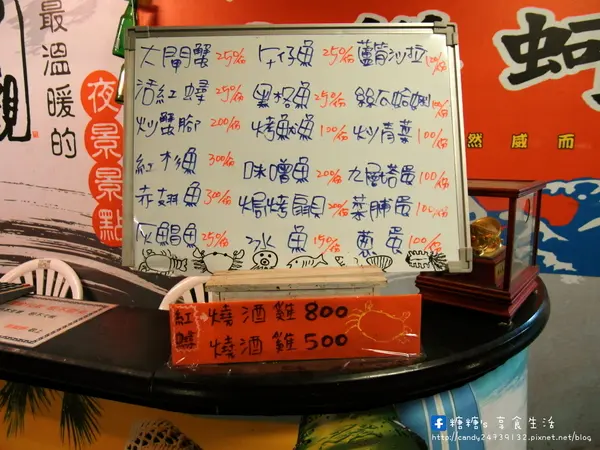 最溫暖的
夜景景點
大閘蟹 25%
午仔魚 25%
蘆筍沙拉 120/份
活紅蟳 25%
黑格魚 25%
絲瓜蛤蜊
炒蟹腳 200/份
烤魚 100/份
炒青菜 100/份
紅杉魚 300/份
味噌魚 200/份
九層塔蛋 100/份
赤翅魚 300/份
焗烤扇貝 200/份
菜脯蛋 100/份
鯧魚 25%
冰魚 150/份
蔥蛋 100/份
紅蟳 燒酒雞800
燒酒雞500
蚵
然威而
糖糖's 享食生活
http://candy24739132.pixnet.net/blog